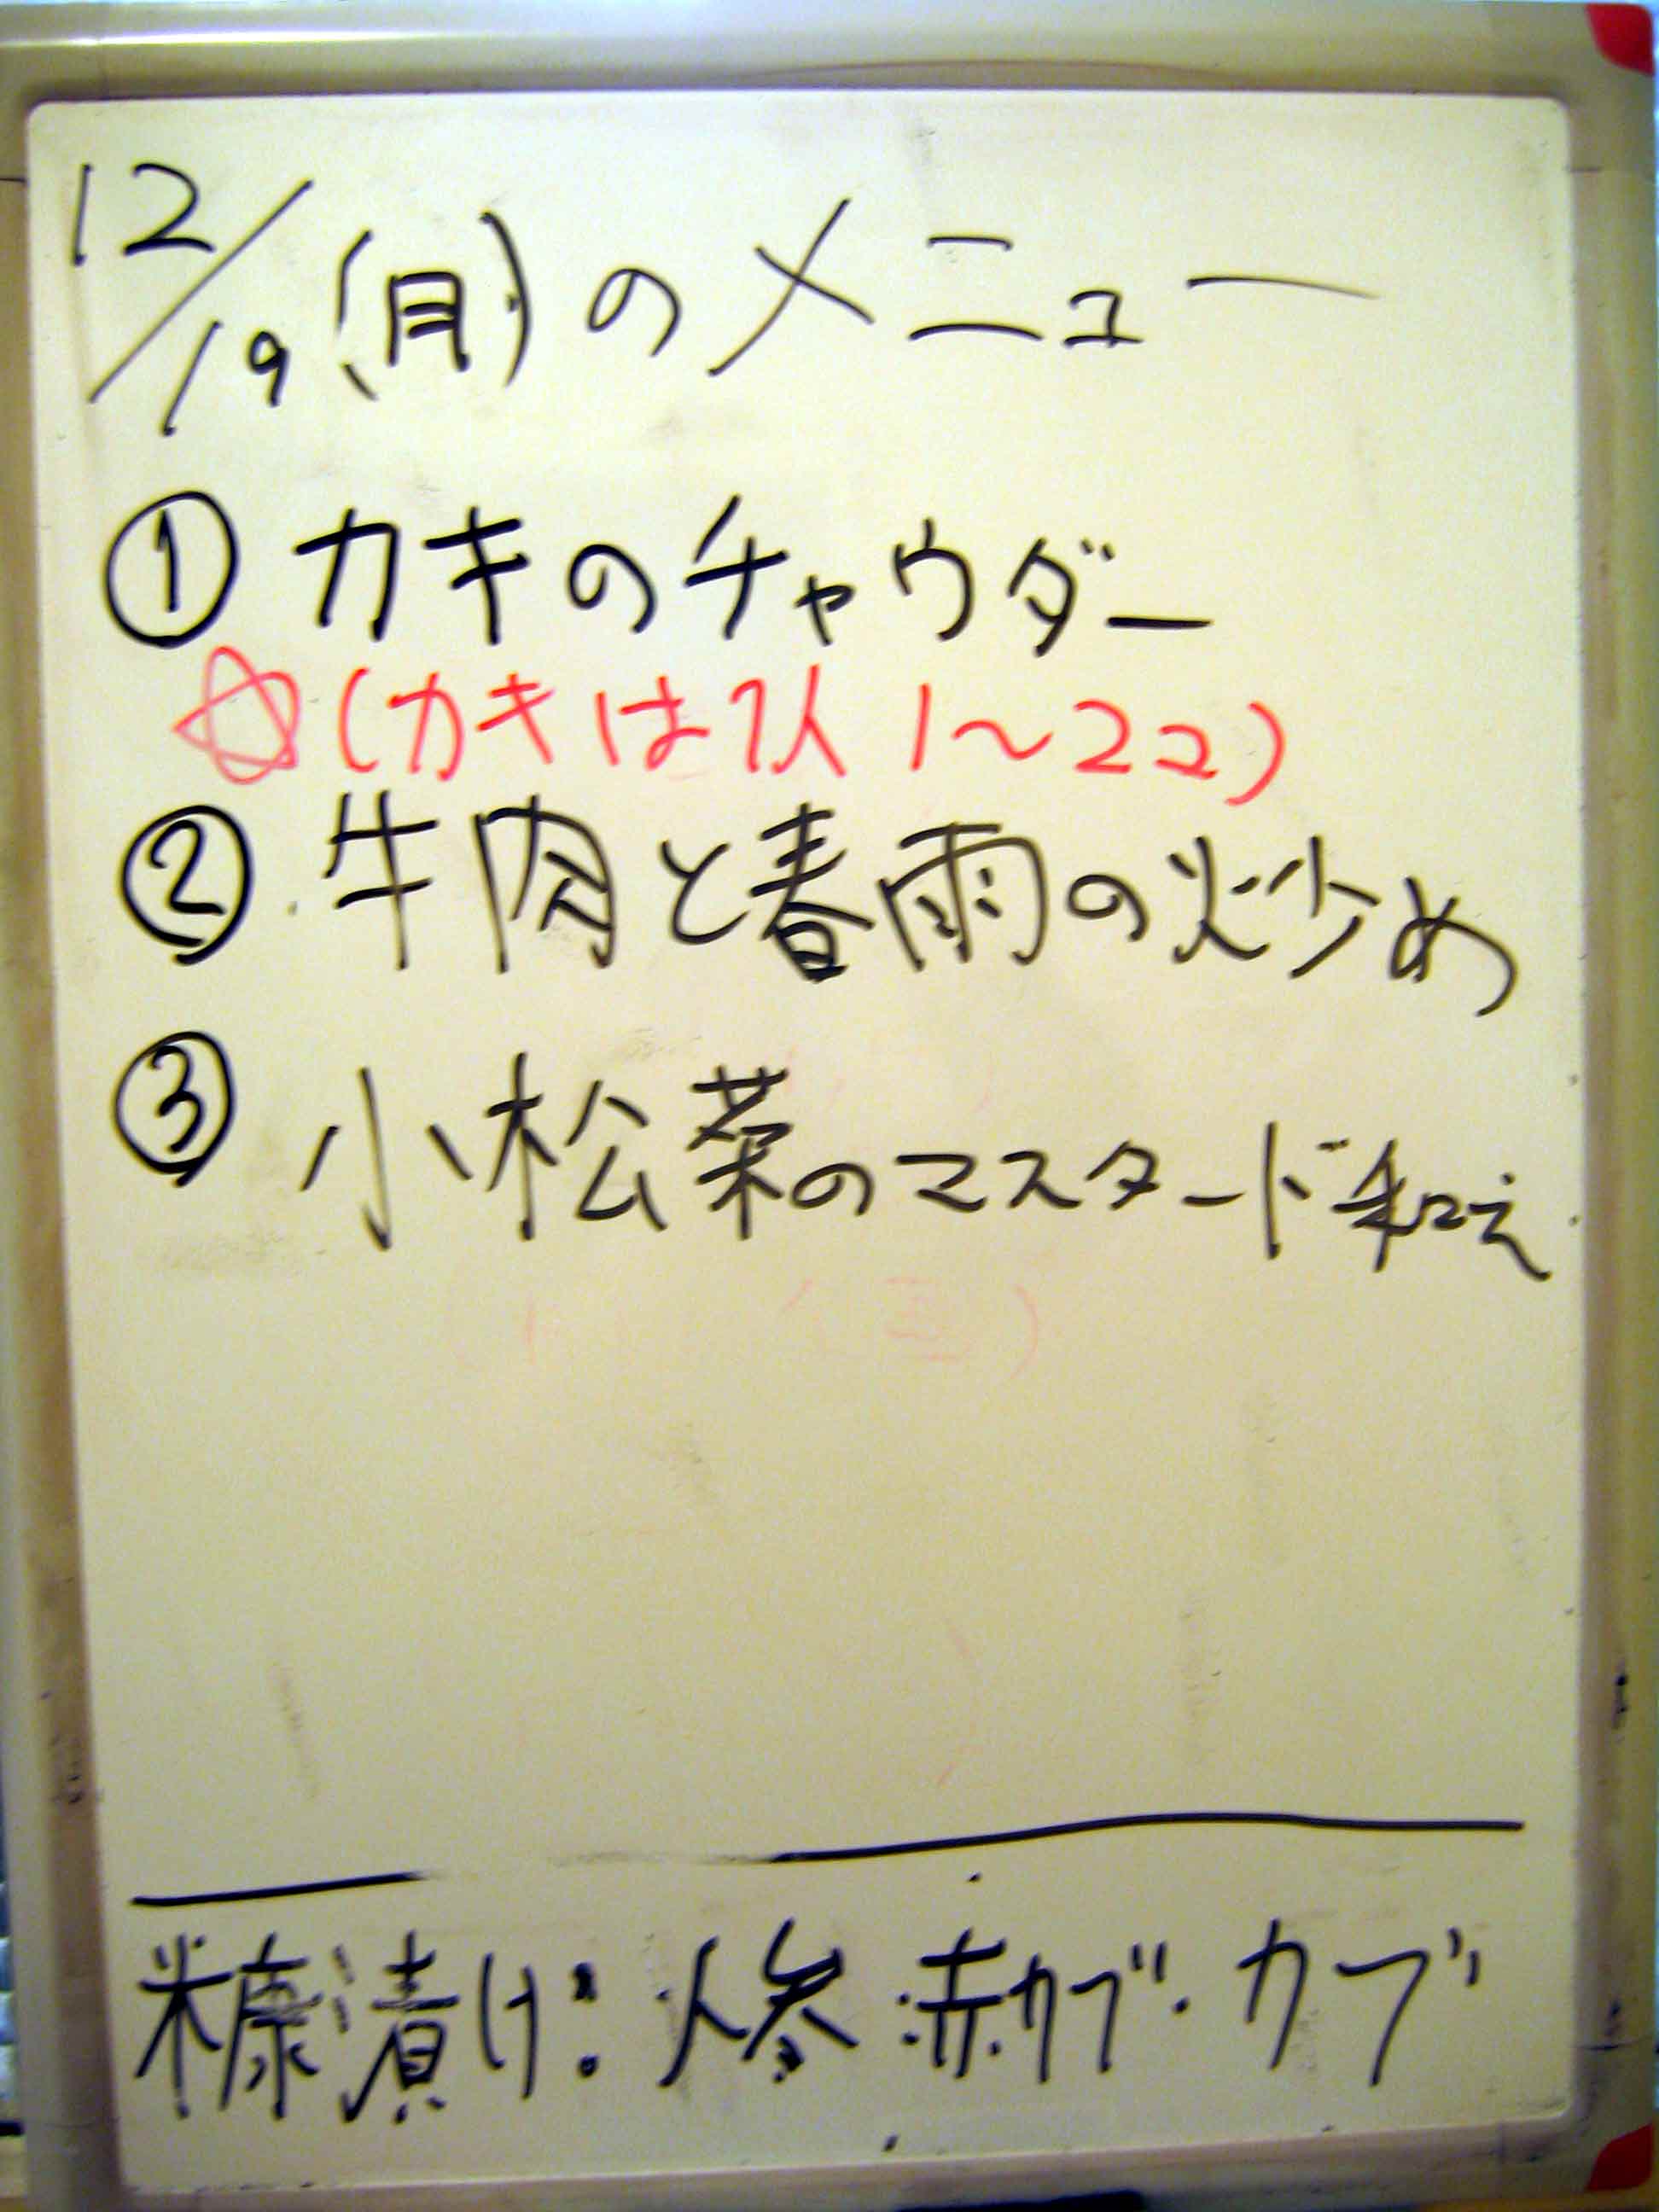 12/19(月)のメニュー
①カキのチャウダー
☆(カキは1人1〜2コ)
②牛肉と春雨の炒め
③小松菜のマスタード和え
糠漬け:人参・赤カブ・カブ